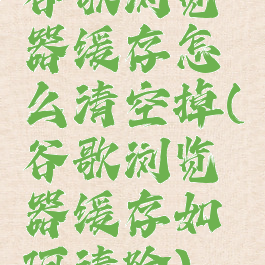 谷歌浏览
器缓存怎
么清空掉(
谷歌浏览
器缓存如
何清除)